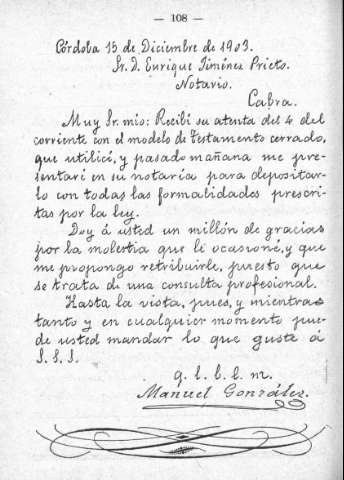 — 108 —
Córdoba 15 de Diciembre de 1903.
Sr. D. Enrique Jiménez Prieto.
Notario.
Cabra.
Muy Sr. mío: Recibí su atenta del 4 del
corriente con el modelo de testamento cerrado,
que utilicé, y pasado mañana me pre-
sentaré en su notaría para depositar-
lo con todas las formalidades prescri-
tas por la ley.
Doy á usted un millón de gracias
por la molestia que le ocasioné, y que
me propongo retribuirle, puesto que
se trata de una consulta profesional.
Hasta la vista, pues, y mientras
tanto y en cualquier momento pue-
de usted mandar lo que guste á
S. S. S.
q. l. b. l. m.
Manuel González.